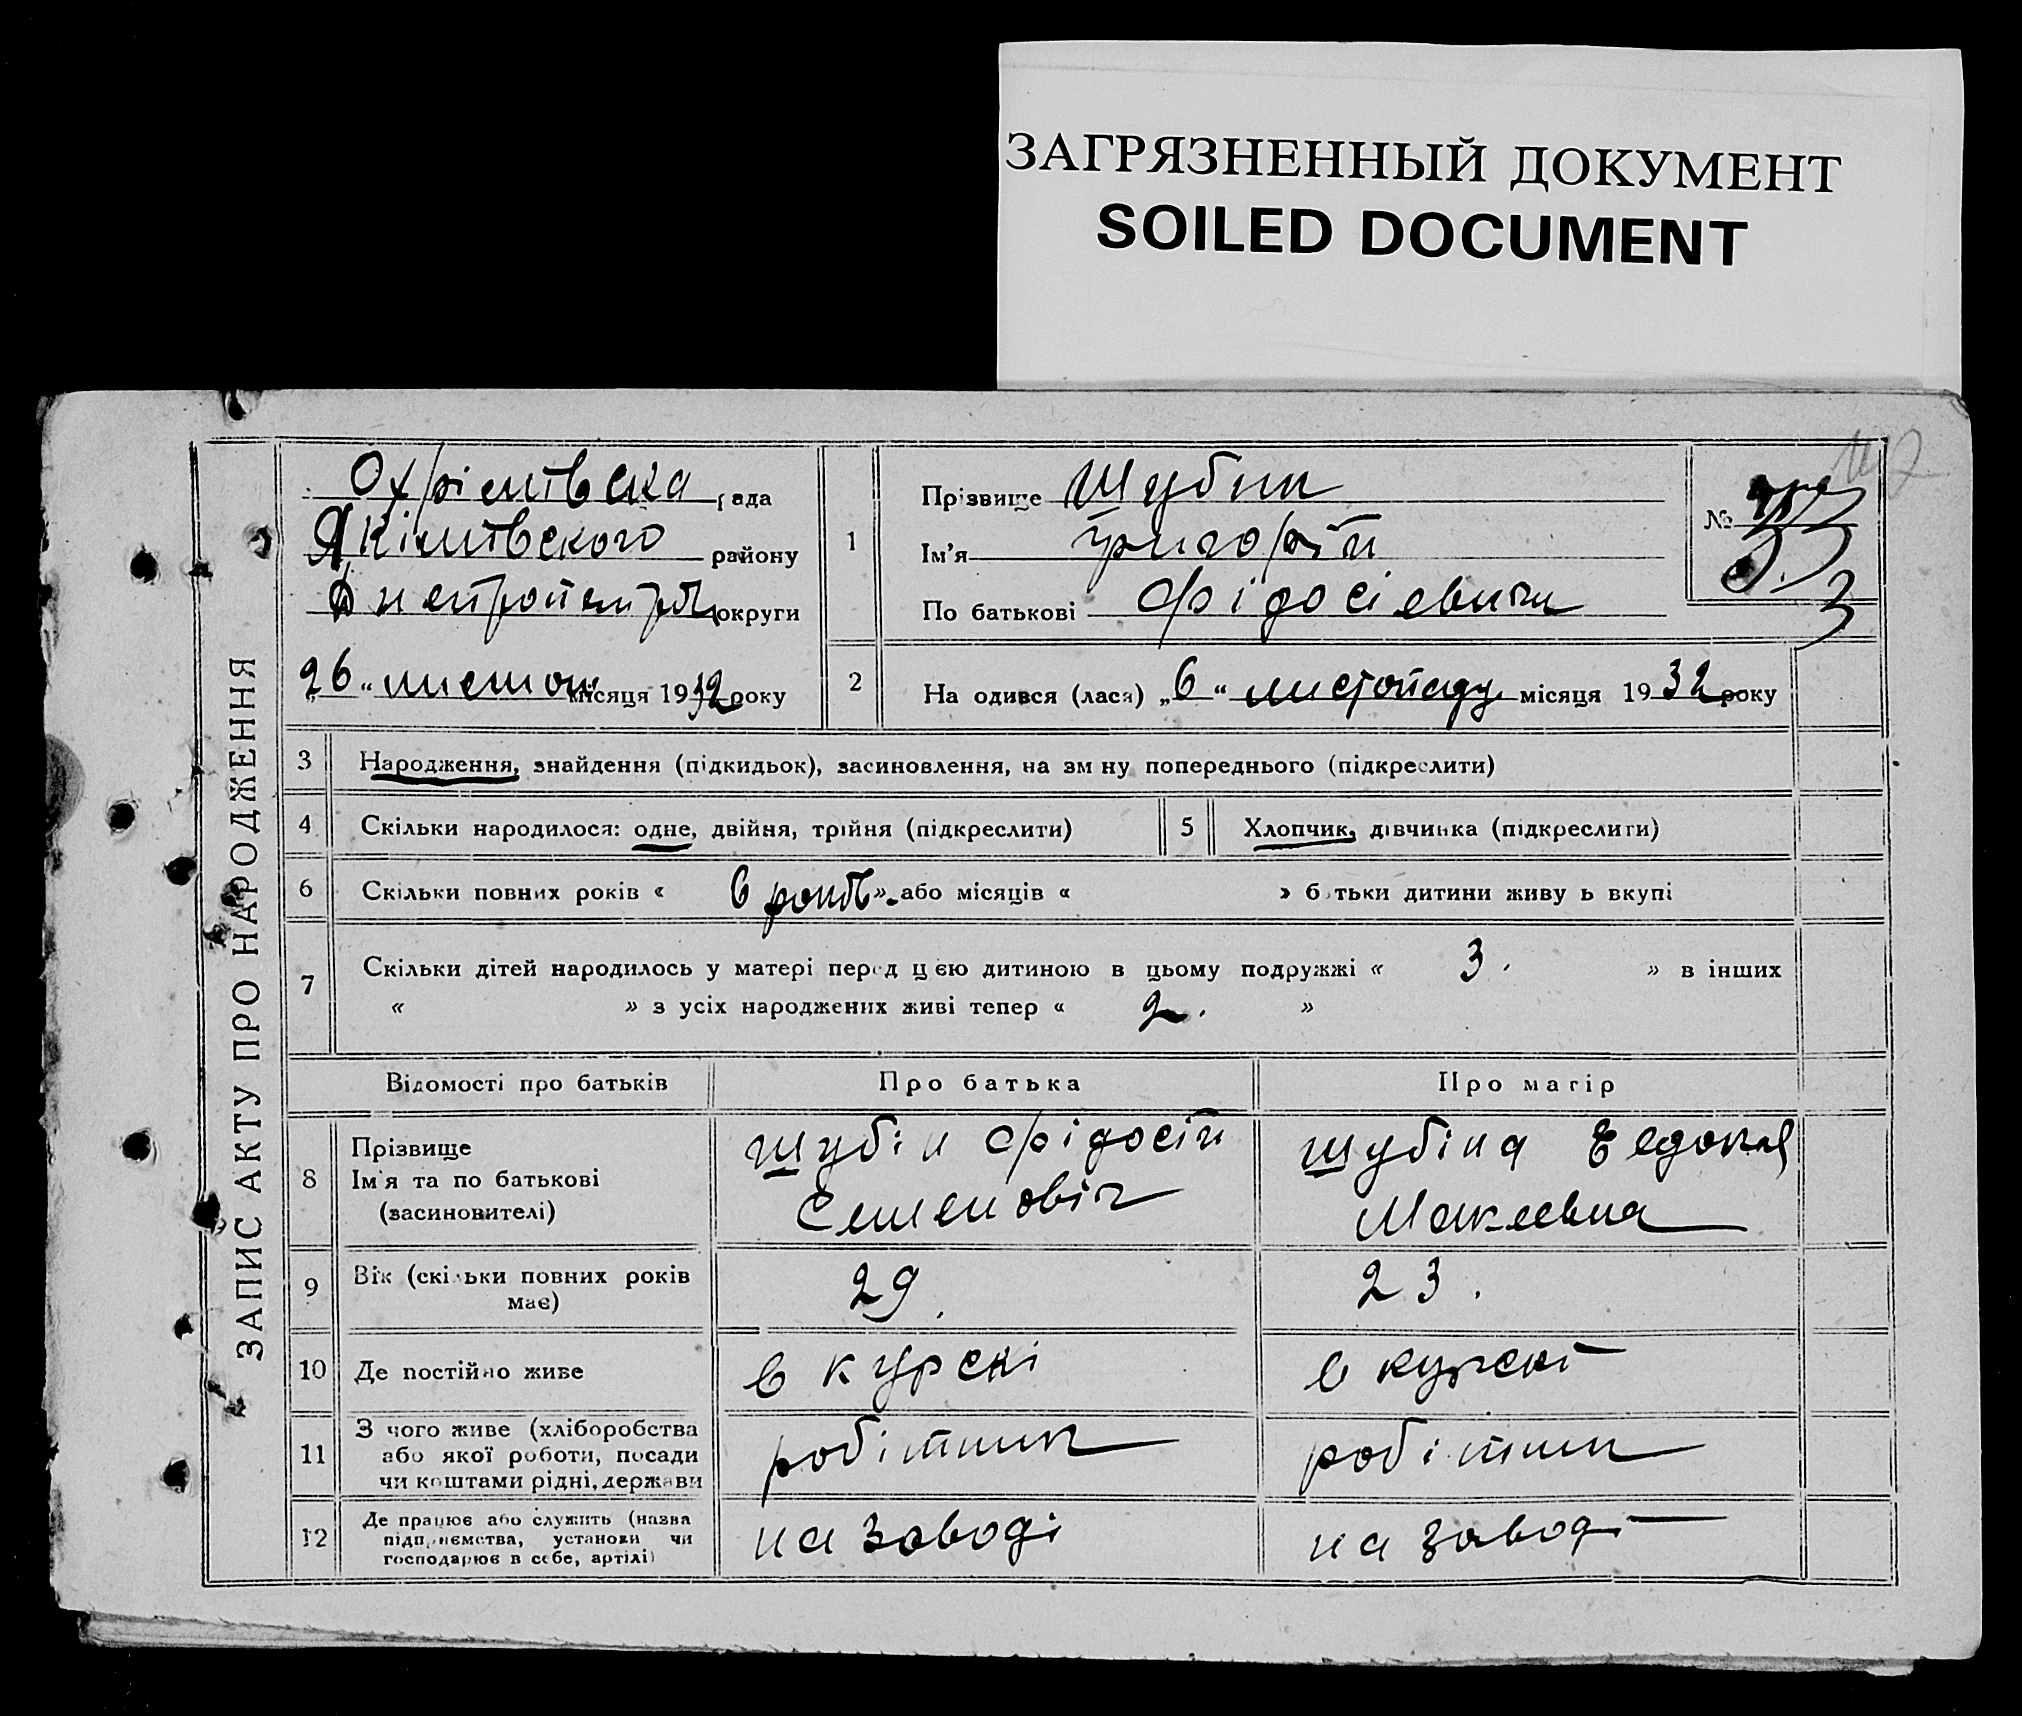 ЗАГРЯЗНЕННЫЙ ДОКУМЕНТ
SOILED DOCUMENT
ЗАПИС АКТУ ПРО НАРОДЖЕННЯ
Охрімівська рада
Якімівського району
округи
26 " листоп місяця 1932 року
1
Прізвище Шубин
Ім'я Григорій
По батькові Фідосієвич
№
2
На одився (лася) „6“ листопаду місяця 1932 року
3 Народження, знайдення (підкидьок), засиновлення, на зм ну попереднього (підкреслити)
4 Скільки народилося: одне, двійня, трійня (підкреслити) 5 Хлопчик, дівчинка (підкреслити)
6 Скільки повних років « 6 років » або місяців « » б тьки дитини живу ь вкупі
7 Скільки дітей народилось у матері перед цією дитиною в цьому подружжі « 3. » в інших
« » з усіх народжених живі тепер « 2. »
Відомості про батьків Про батька Про матір
8 Прізвище
Ім'я та по батькові
(засиновителі)
Шубін Фідосій
Семенович
Шубіна Евдокія
Макеевна
9 Вік (скільки повних років
має)
29. 23.
10 Де постійно живе в курскі в курскі
11 З чого живе (хліборобства
або якої роботи, посади
чи коштами рідні, держави
робітник робітник
12 Де працює або служить (назва
підприємства, установи чи
господарює в себе, артілі)
на заводі на заводі